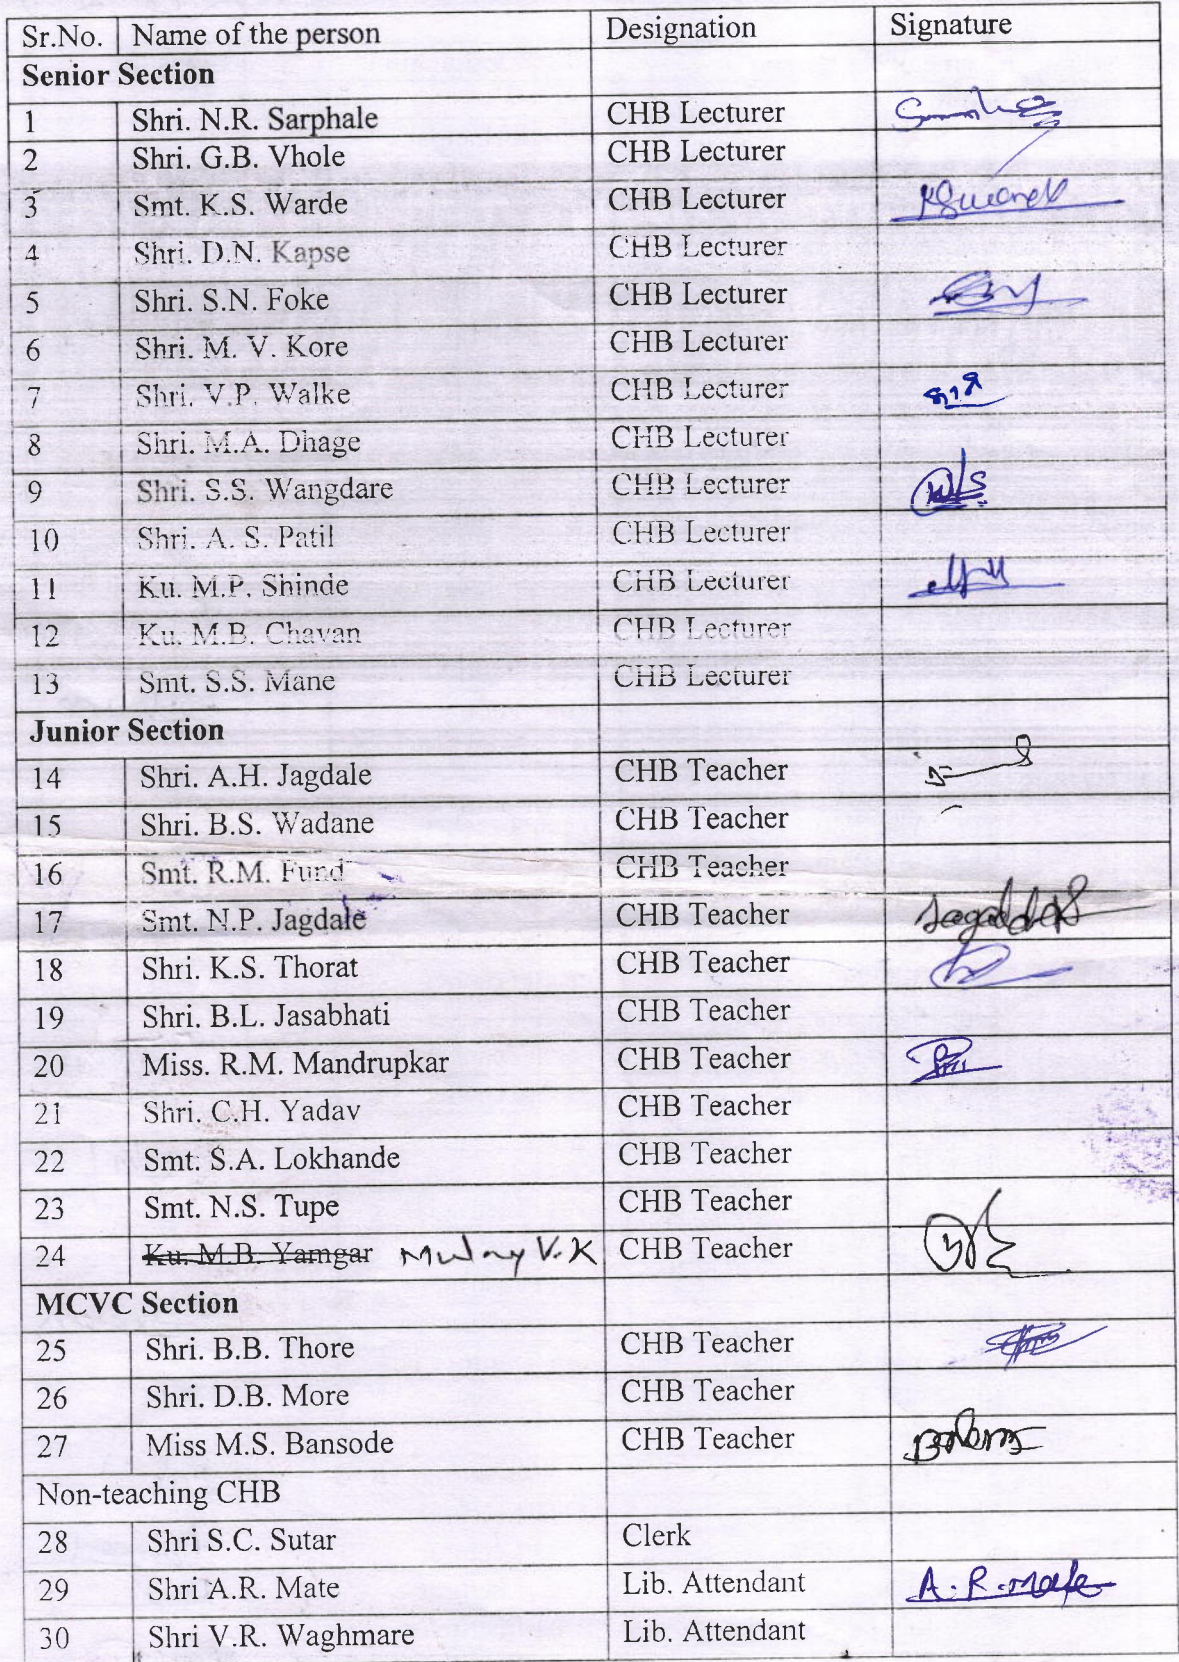 Sr.No. Name of the person Designation Signature
Senior Section
1 Shri. N.R. Sarphale CHB Lecturer
2 Shri. G.B. Vhole CHB Lecturer
3 Smt. K.S. Warde CHB Lecturer
4 Shri. D.N. Kapse CHB Lecturer
5 Shri. S.N. Foke CHB Lecturer
6 Shri. M. V. Kore CHB Lecturer
7 Shri. V.P. Walke CHB Lecturer
8 Shri. M.A. Dhage CHB Lecturer
9 Shri. S.S. Wangdare CHB Lecturer
10 Shri. A. S. Patil CHB Lecturer
11 Ku. M.P. Shinde CHB Lecturer
12 Ku. M.B. Chavan CHB Lecturer
13 Smt. S.S. Mane CHB Lecturer
Junior Section
14 Shri. A.H. Jagdale CHB Teacher
15 Shri. B.S. Wadane CHB Teacher
16 Smt. R.M. Fund CHB Teacher
17 Smt. N.P. Jagdale CHB Teacher
18 Shri. K.S. Thorat CHB Teacher
19 Shri. B.L. Jasabhati CHB Teacher
20 Miss. R.M. Mandrupkar CHB Teacher
21 Shri. C.H. Yadav CHB Teacher
22 Smt. S.A. Lokhande CHB Teacher
23 Smt. N.S. Tupe CHB Teacher
24 Ku. M.B. Yamgar V.K CHB Teacher
MCVC Section
25 Shri. B.B. Thore CHB Teacher
26 Shri. D.B. More CHB Teacher
27 Miss M.S. Bansode CHB Teacher
Non-teaching CHB
28 Shri S.C. Sutar Clerk
29 Shri A.R. Mate Lib. Attendant A.R.Mate
30 Shri V.R. Waghmare Lib. Attendant